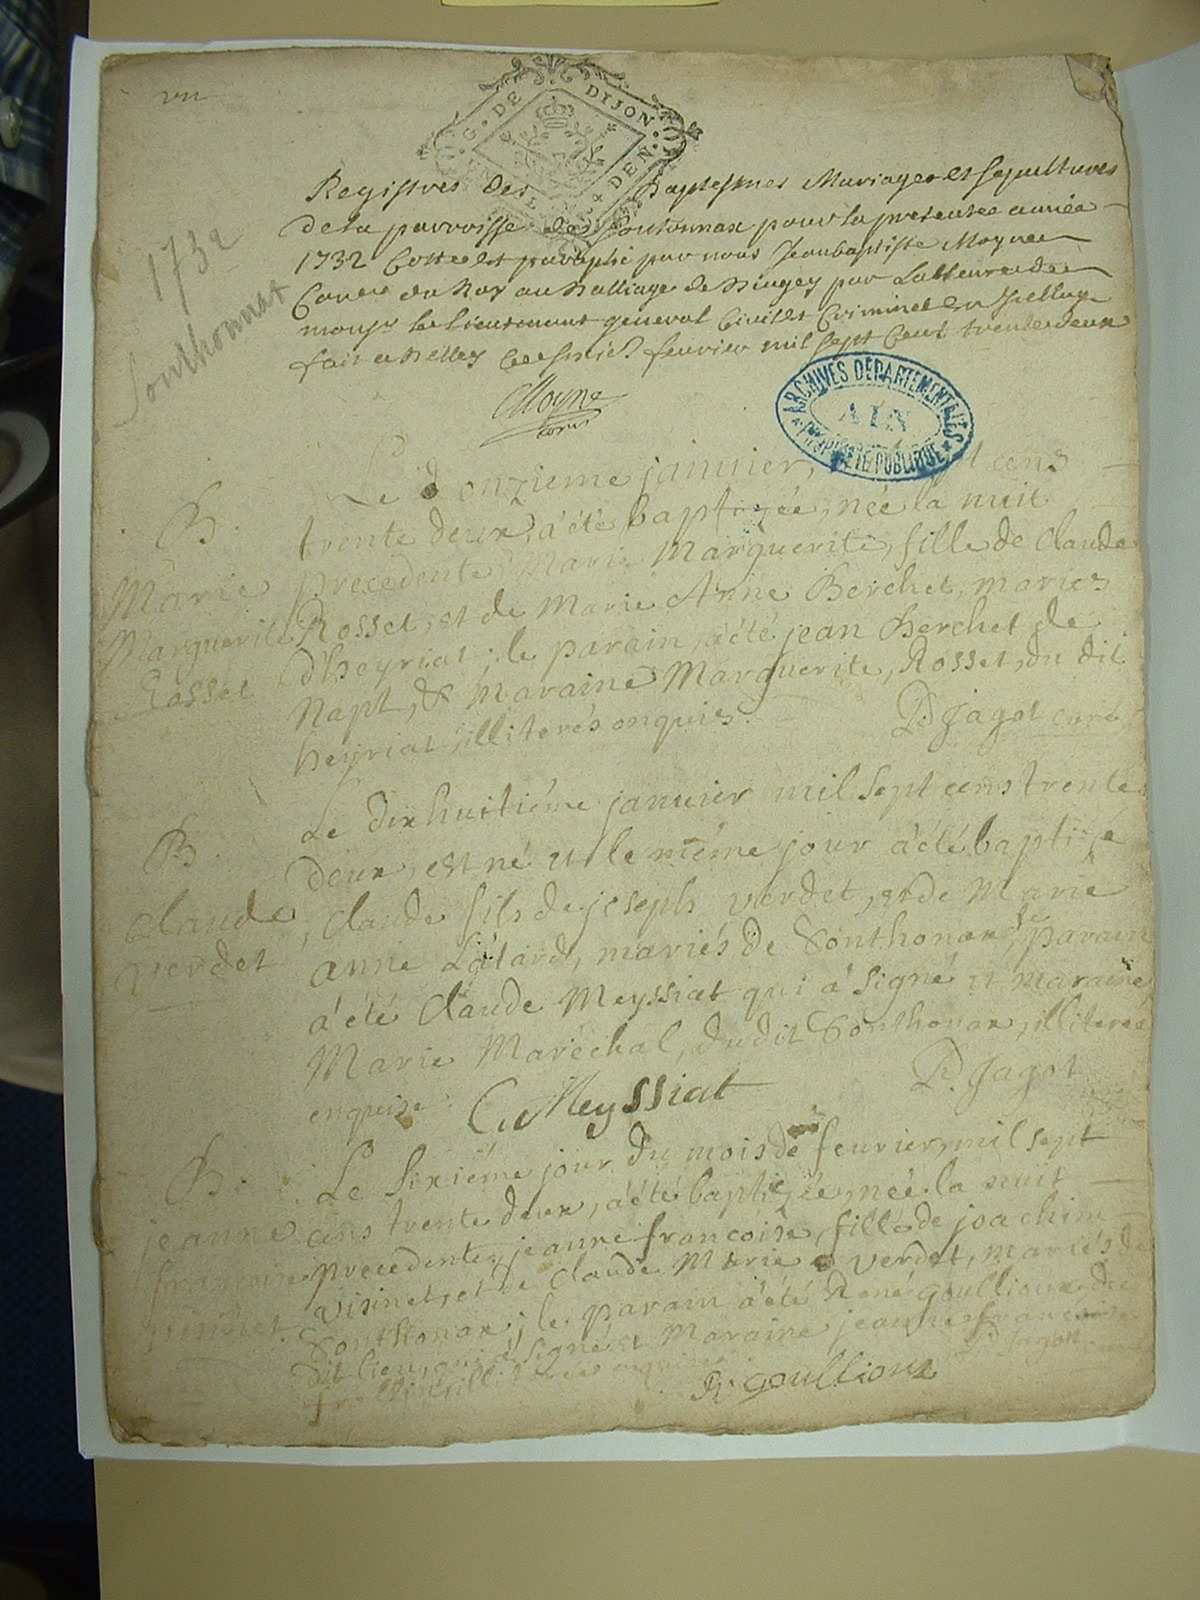 G. DE DIJON
DEN
Registres des Baptesmes Mariages et sepultures
de la parroisse de Soutonnax pour la presente année
1732 Cotté et paraphé par nous Jeanbaptiste Moyne
du Roy au Balliage de Bugey par
mons.r le lieutenant general Civil et Criminel
fait a Belley fevrier mil sept cent trente deux
Moyne
1732
Sonthonnax
ARCHIVES DÉPARTEMENTALES
AIN
PROPRIÉTÉ PUBLIQUE
Le onzieme januier, cens
B.
trente deux, a été baptizée, née la nuit
Marie
precedente, Marie Marguerite, fille de Claude
Marguerite
Rosset, et de Marie Anne Berchet, mariés
Rosset
d'heyriat; le parain, a été jean Berchet de
Napt, & Maraine Marguerite, Rosset, du dit
heyriat illiterés enquis.
P. Jagot curé
Le dixhuitiéme januier mil sept cens trente
B.
deux, est né et le méme jour a été baptizé
Claude
Claude fils de joseph verdet, et de Marie
verdet
anne Latard, mariés de Sonthonax, parain
a été Claude Meyssiat qui a signé et maraine
Marie Maréchal, dudit Sonthonax, illiterée
enquise.
P. Jagot
C. Meyssiat
B.
Le sixiéme jour du mois de feurier, mil sept
jeanne
cens trente deux, a été baptizée, née la nuit
francoise
precedente, jeanne francoise, fille de joachim
vizinet
vizinet, et de Claude Marie verdet, mariés de
Sonthonax; le parain a été René goullioux du
dit lieu, qui a signé et Maraine jeanne francoise
P. Jagot
R. goullioux